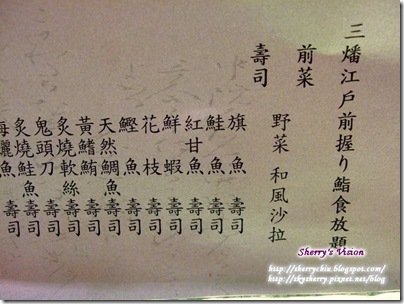 三燔江戶前握り鮨食放題
前菜
野菜 和風沙拉
壽司
旗魚壽司
鮭魚壽司
紅甘魚壽司
鮮蝦壽司
花枝壽司
鰹魚壽司
天然鯛魚壽司
黃鰭鮪壽司
炙燒軟絲壽司
鬼頭刀壽司
炙燒鮭魚壽司
海鱺魚壽司
Sherry's Vision
http://sherrychiu.blogspot.com/
http://skysherry.pixnet.net/blog